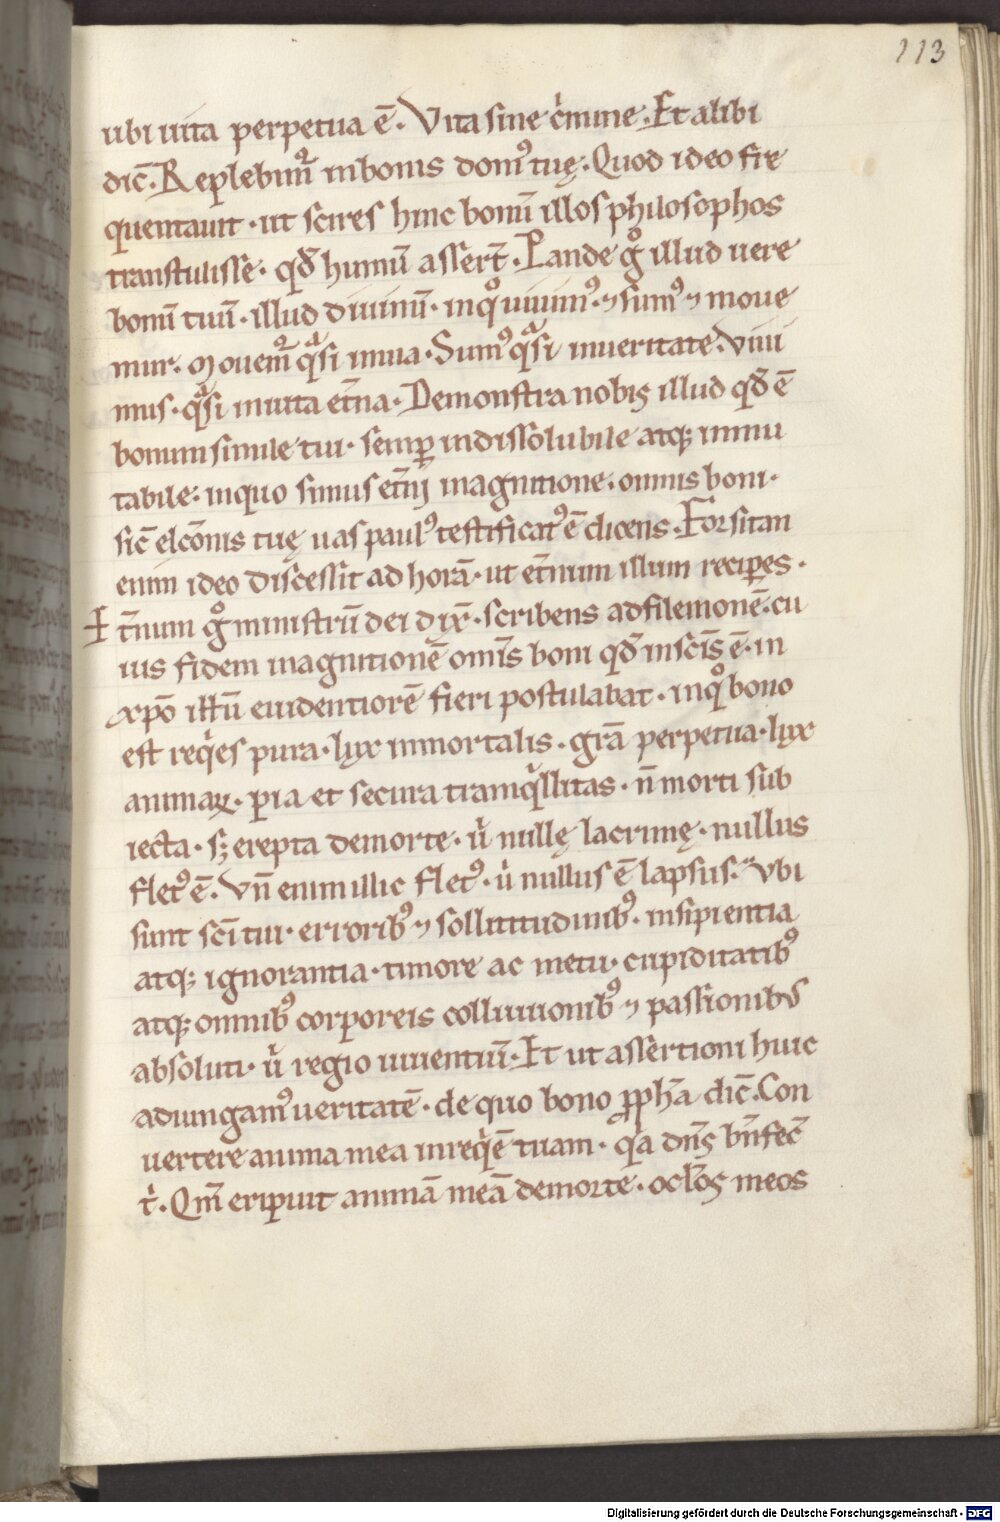 113
ubi uita perpetua ē. Vita sine c̓mine. Et alibi
dic̄. Replebim᷒ in bonis dom᷒ tuę. Quod ideo fre
quentauit. ut scires hinc bonū illos philosophos
transtulisse. qđ humū assert̄. Pande gͦ illud uere
bonū tuū. illud diuinū. in qͦ uiuim᷒. ⁊ sum᷒ ⁊ moue
mur. Mouem᷒ qᷓsi in uia. Sum᷒ qᷓsi in ueritate. Viui
mus. qᷓsi in uita et̄na. Demonstra nobis illud qđ ē
bonum simile tui. semꝑ indissolubile atq; inmu
tabile. in quo simus et̄ni magnitione. omnis boni.
sic̄ elc̄onis tuę uas paul᷒ testificat᷒ ē dicens. Forsitan
enim ideo discessit ad horā. ut et̄num illum reciperes.
Et̄num gͦ ministrū dei dix̄. scribens ad filemonē. cu
ius fidem magnitionē omīs boni qđ in scīs ē. in
xp̄o ih̄ū euidentiorē fieri postulabat. in qͦ bono
est req̓es pura. lux inmortalis. gr̄a perpetua. lux
animaꝝ. pia et secura tranq̓llitas. n̄ morti sub
iecta. sꝫ erepta de morte. u̓ nullę lacrimę. nullus
flet᷒ ē. Vn̄ enim illic flet᷒. u̓ nullus ē lapsus. Vbi
sunt sc̄i tui. errorib᷒ ⁊ sollititudinib᷒. insipientia
atq; ignorantia. timore ac metu. cupiditatib᷒
atq; omnib᷒ corporeis colluuionib᷒ ⁊ passionibs
absoluti. u̓ regio uiuentiū. Et ut assertioni huic
adiungam᷒ ueritatē. de quo bono ꝓph̄a dic̄. Con
uertere anima mea in req̓ē tuam. qᷓa dn̄s bn̄fec̄
t̓. Qm̄ eripuit animā meā de morte. ocl̄os meos
Digitalisierung gefördert durch die Deutsche Forschungsgemeinschaft - DFG